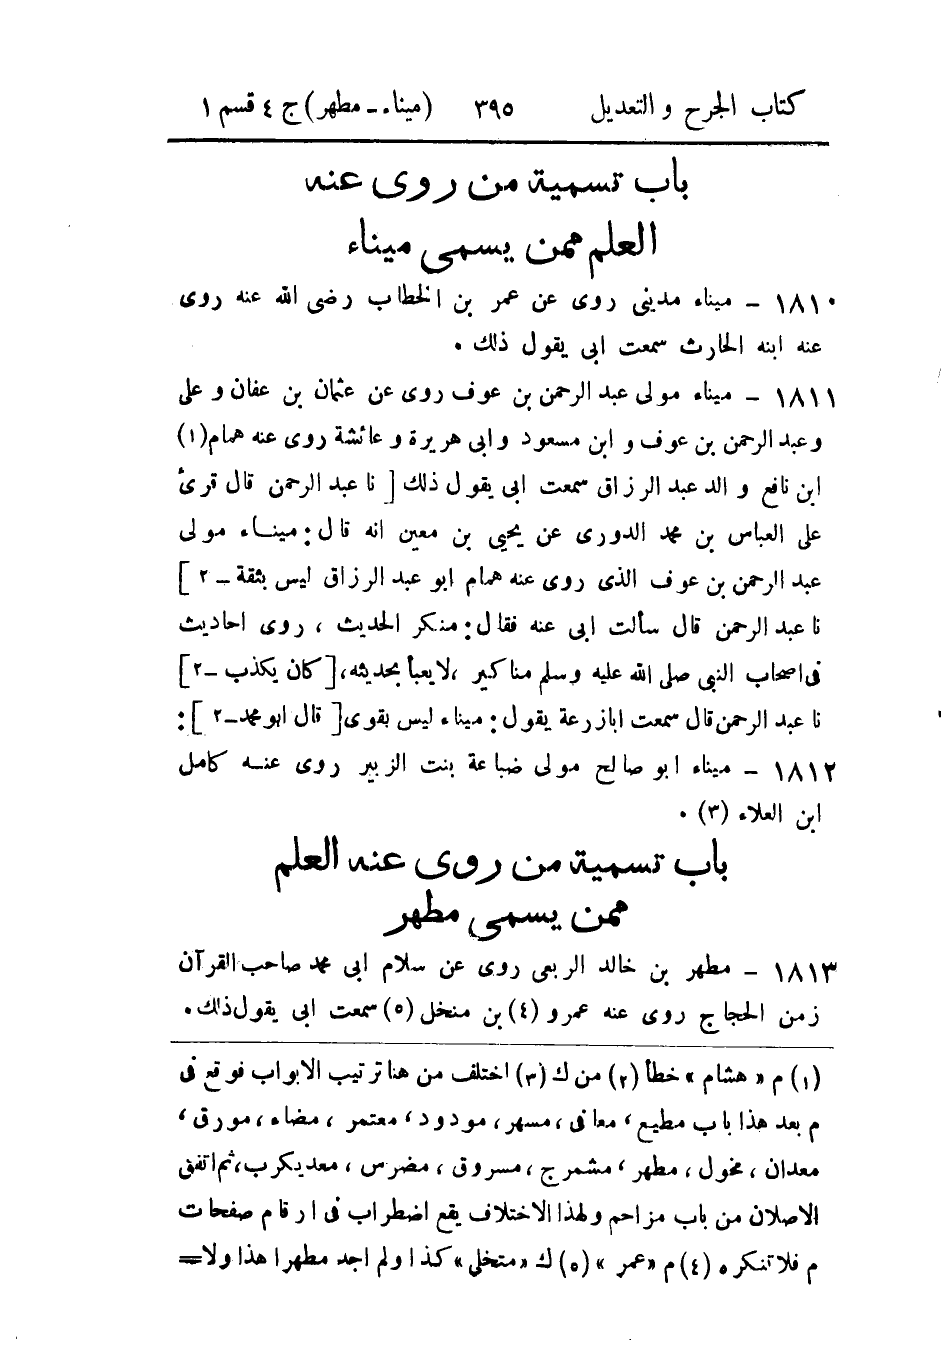 كتاب الجرح و التعديل ٣٩٥ (ميناء ـ مطهر) ج ٤ قسم ١
باب تسمية من روى عنه
العلم ممن يسمى ميناء
١٨١٠ – ميناء مدينى روى عن عمر بن الخطاب رضى الله عنه روى
عنه ابنه الحارث سمعت ابى يقول ذلك .
١٨١١ – ميناء مولى عبد الرحمن بن عوف روى عن عثمان بن عفان و على
و عبد الرحمن بن عوف و ابن مسعود وابى هريرة و عائشة روى عنه همام (١)
ابن نافع و الد عبد الرزاق سمعت ابى يقول ذلك [ نا عبد الرحمن قال قرئ
على العباس بن محمد الدورى عن يحيى بن معين انه قال : مينـاء مولى
عبد الرحمن بن عوف الذى روى عنه همام ابو عبد الرزاق ليس بثقة – ٢ ]
نا عبد الرحمن قال سألت ابى عنه فقال : منكر الحديث ، روى احاديث
فى اصحاب النبى صلى الله عليه وسلم مناكير ، لا يعبأ بحديثه ، [ كان يكذب – ٢ ]
نا عبد الرحمن قال سمعت ابا زرعة يقول : ميناء ليس بقوى [ قال ابو محمد – ٢ ] :
١٨١٢ – ميناء ابو صالح مولى ضباعة بنت الزبير روى عنـه كامل
ابن العلاء (٣) .
باب تسمية من روى عنه العلم
ممن يسمى مطهر
١٨١٣ – مطهر بن خالد الربعى روى عن سلام ابى محمد صاحب القرآن
زمن الحجاج روى عنه عمرو (٤) بن منخل (٥) سمعت ابى يقول ذلك .
(١) م « هشام » خطأ (٢) من ك (٣) اختلف من هنا ترتيب الابواب فوقع فى
م بعد هذا باب مطيع ، معافى ، مسهر ، مودود ، معتمر ، مضاء ، مورق ،
معدان ، مخول ، مطهر ، مشمرج ، مسروق ، مضرس ، معد يكرب ، ثم اتفق
الاصلان من باب مزاحم ولهذا الاختلاف يقع اضطراب فى ارقام صفحات
م فلا تنكره (٤) م « عمر » (٥) ك « متخلى » كذا ولم اجد مطهرا هذا ولا =